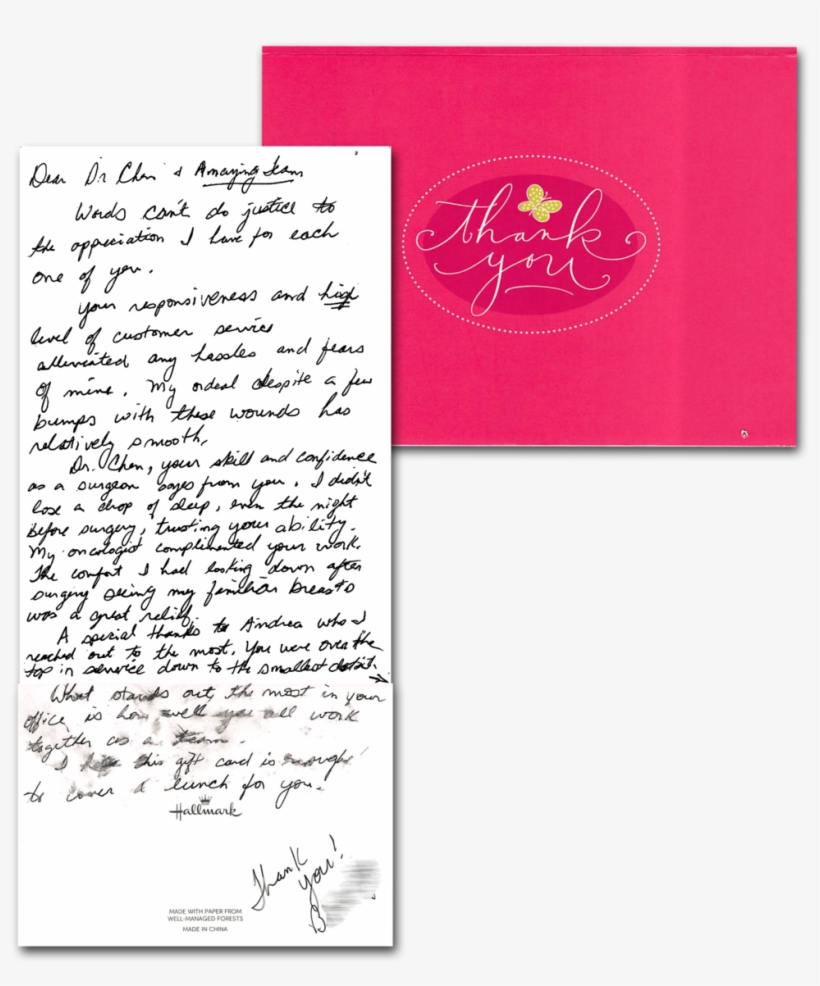 Thank
you
Dear Dr Chen & Amazing team
Words can't do justice to
the appreciation I have for each
one of you.
Your responsiveness and high
level of customer service
alleviated any hassles and fears
of mine. My ordeal despite a few
bumps with these wounds has
relatively smooth.
Dr. Chen, your skill and confidence
as a surgeon oozes from you. I didn't
lose a drop of sleep, even the night
before surgery, trusting your ability.
My oncologist complimented your work.
The comfort I had looking down after
surgery seeing my familiar breasts
was a great relief.
A special thanks to Andrea who I
reached out to the most. You were over the
top in service down to the smallest detail.
What stands out, the most in your
office is how well you all work
together as a team.
I hope this gift card is enough
to cover a lunch for you.
Hallmark
Thank
you!
B
MADE WITH PAPER FROM
WELL-MANAGED FORESTS
MADE IN CHINA